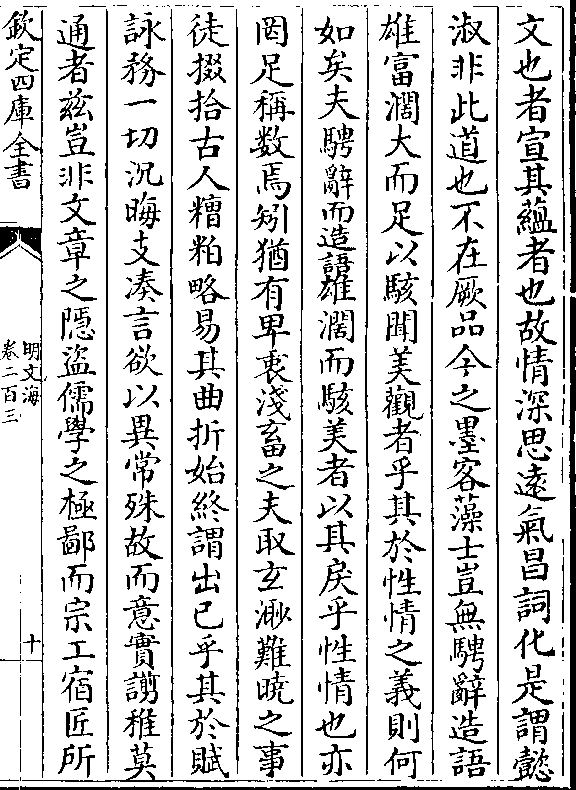 文也者宣其蘊者也故情深思遠氣昌詞化是謂懿
淑非此道也不在厥品今之墨客藻士豈無騁辭造語
雄富濶大而足以駭聞美觀者乎其於性情之義則何
如矣夫騁辭而造語雄濶而駭美者以其戾乎性情也亦
罔足稱数焉矧猶有卑衷淺畜之夫取玄渺難曉之事
徒掇拾古人糟粕略易其曲折始終謂出己乎其於賦
詠務一切沉晦支湊言欲以異常殊故而意實謭稚莫
通者兹豈非文章之隠盜儒學之極鄙而宗工宿匠所
欽定四庫全書
明文海
卷二百三
十